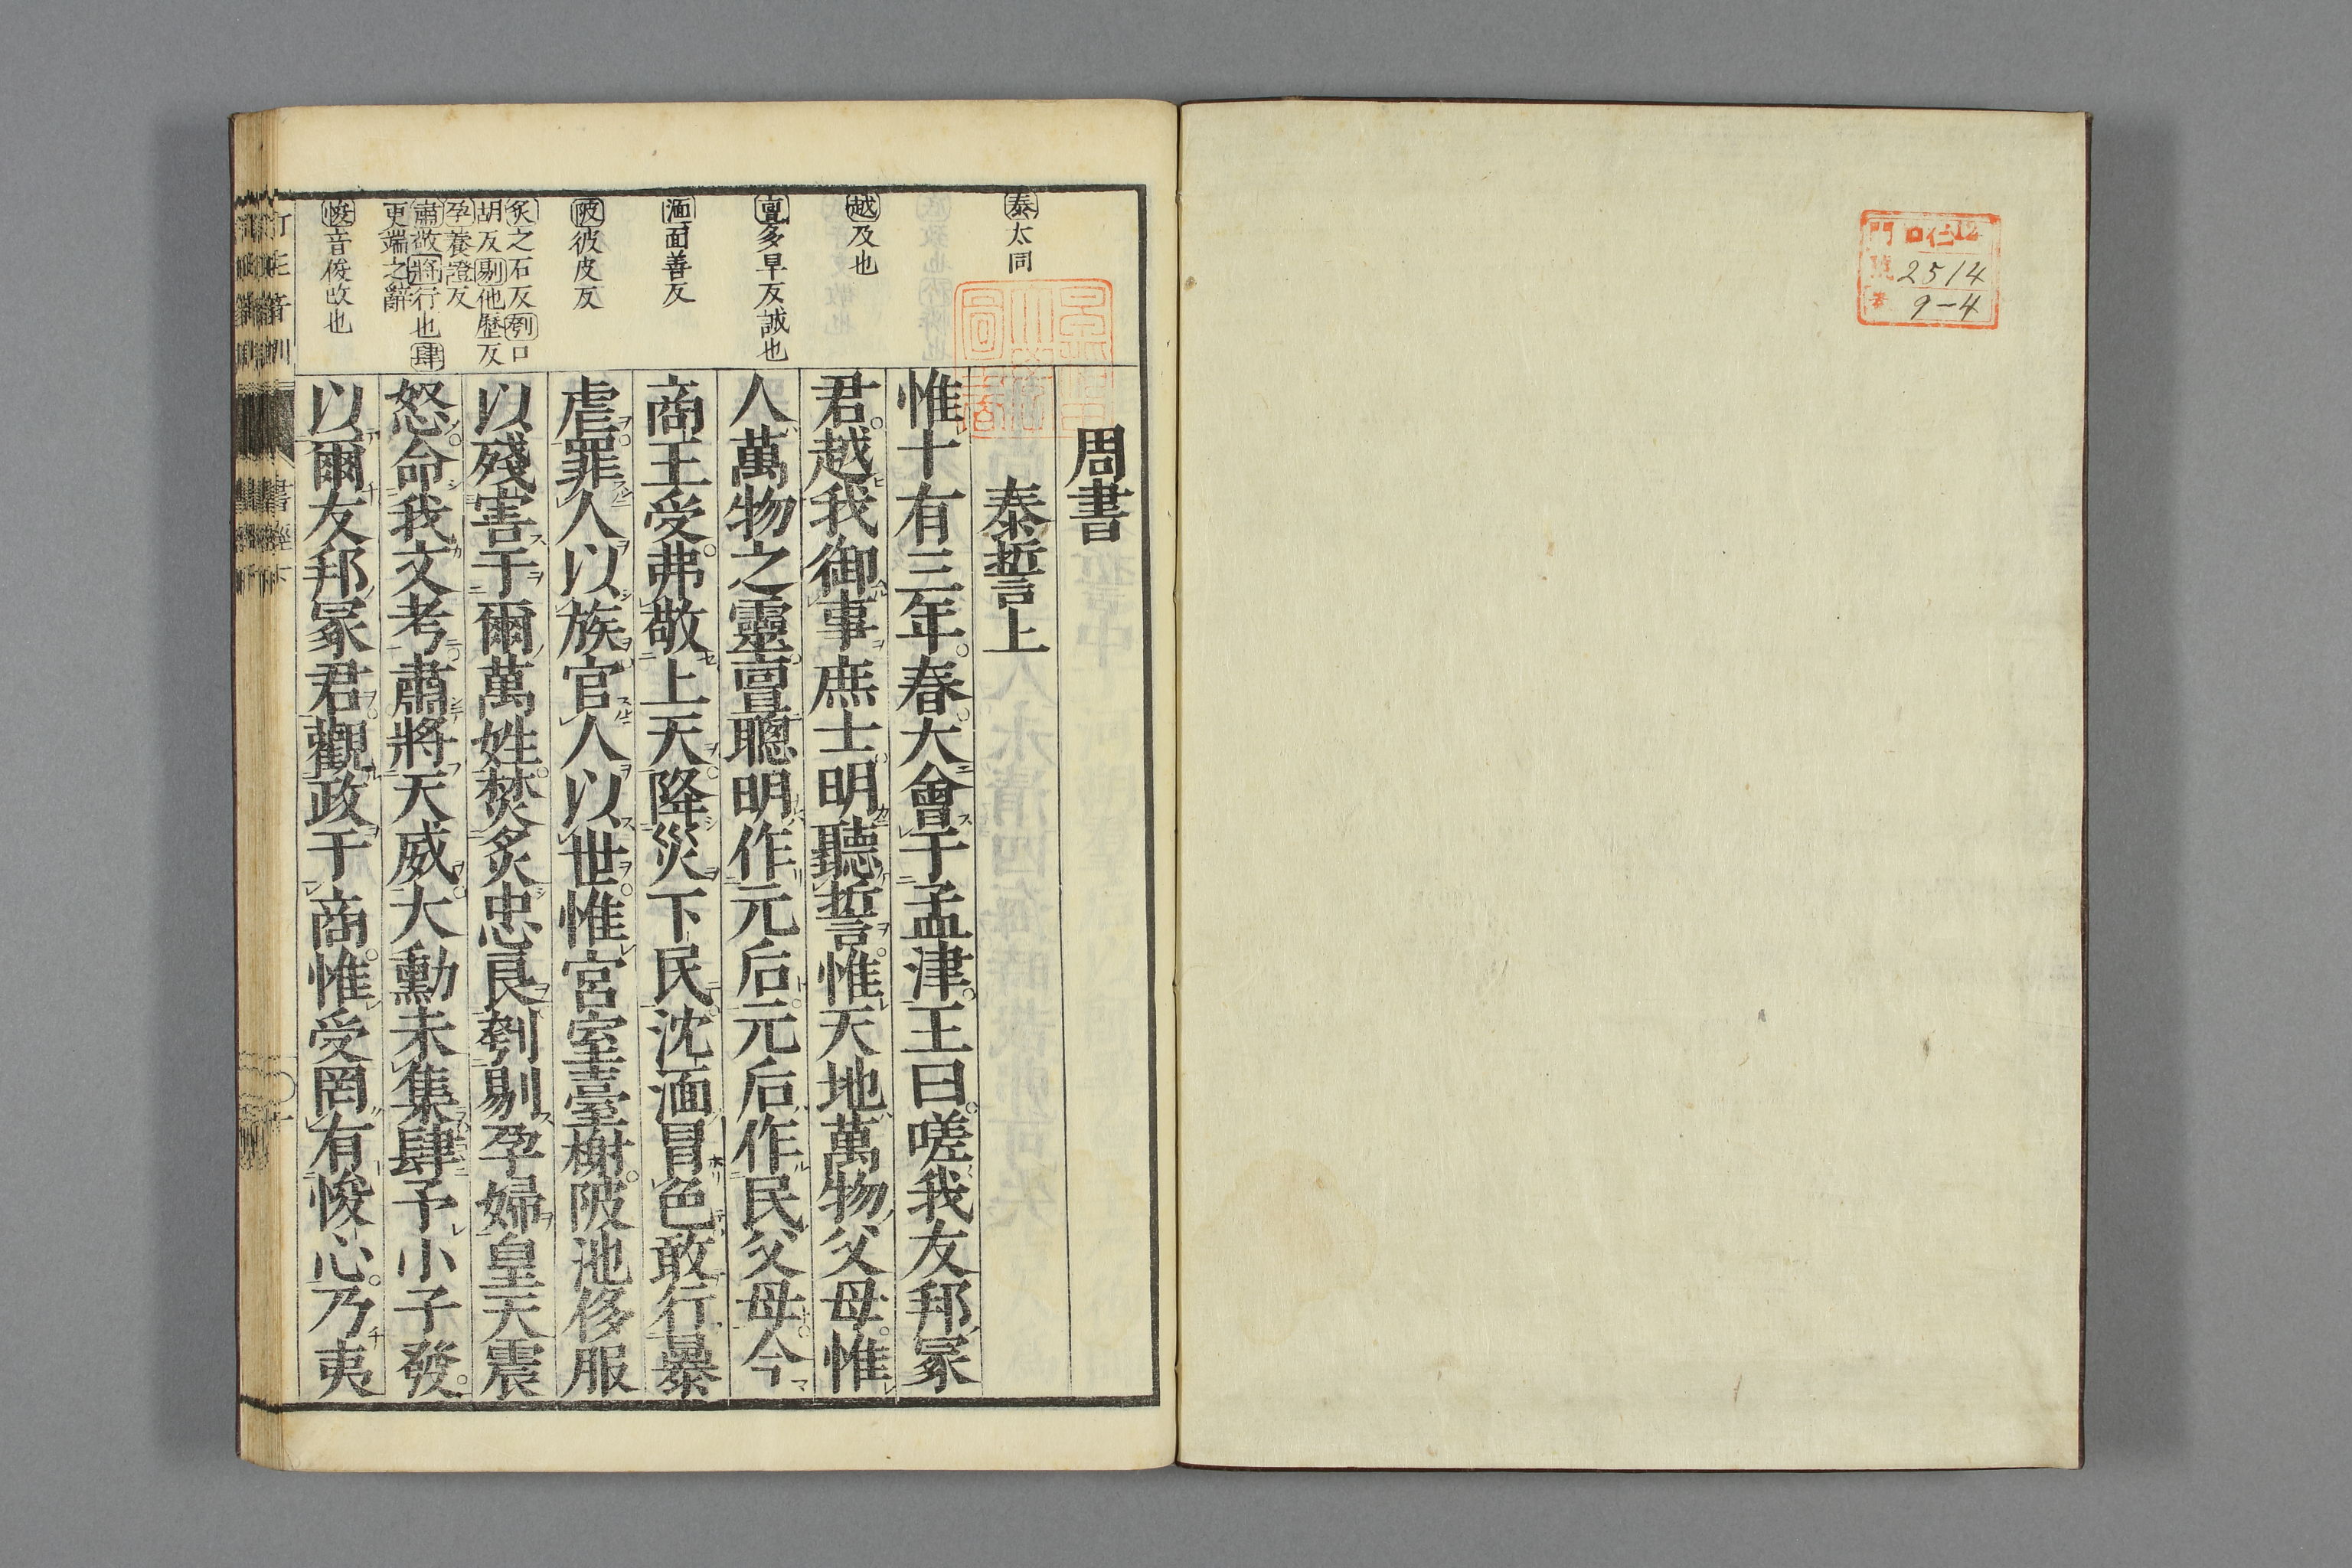 門 口仁12
號 2514
9-4
泰太同
越及也
亶多早反誠也
湎面善反
陂彼皮反
炙之石反刳口
胡反剔他歷反
孕養證反
肅敬將行也肆
更端之辭
悛音俊改也
周書
泰誓上
惟十有三年春大會于孟津王曰嗟我友邦冢
君越我御事庶士明聽誓惟天地萬物父母惟
人萬物之靈亶聰明作元后元后作民父母今
商王受弗敬上天降災下民沈湎冒色敢行暴
虐罪人以族官人以世惟宮室臺榭陂池侈服
以殘害于爾萬姓焚炙忠良刳剔孕婦皇天震
怒命我文考肅將天威大勳未集肆予小子發
以爾友邦冢君觀政于商惟受罔有悛心乃夷